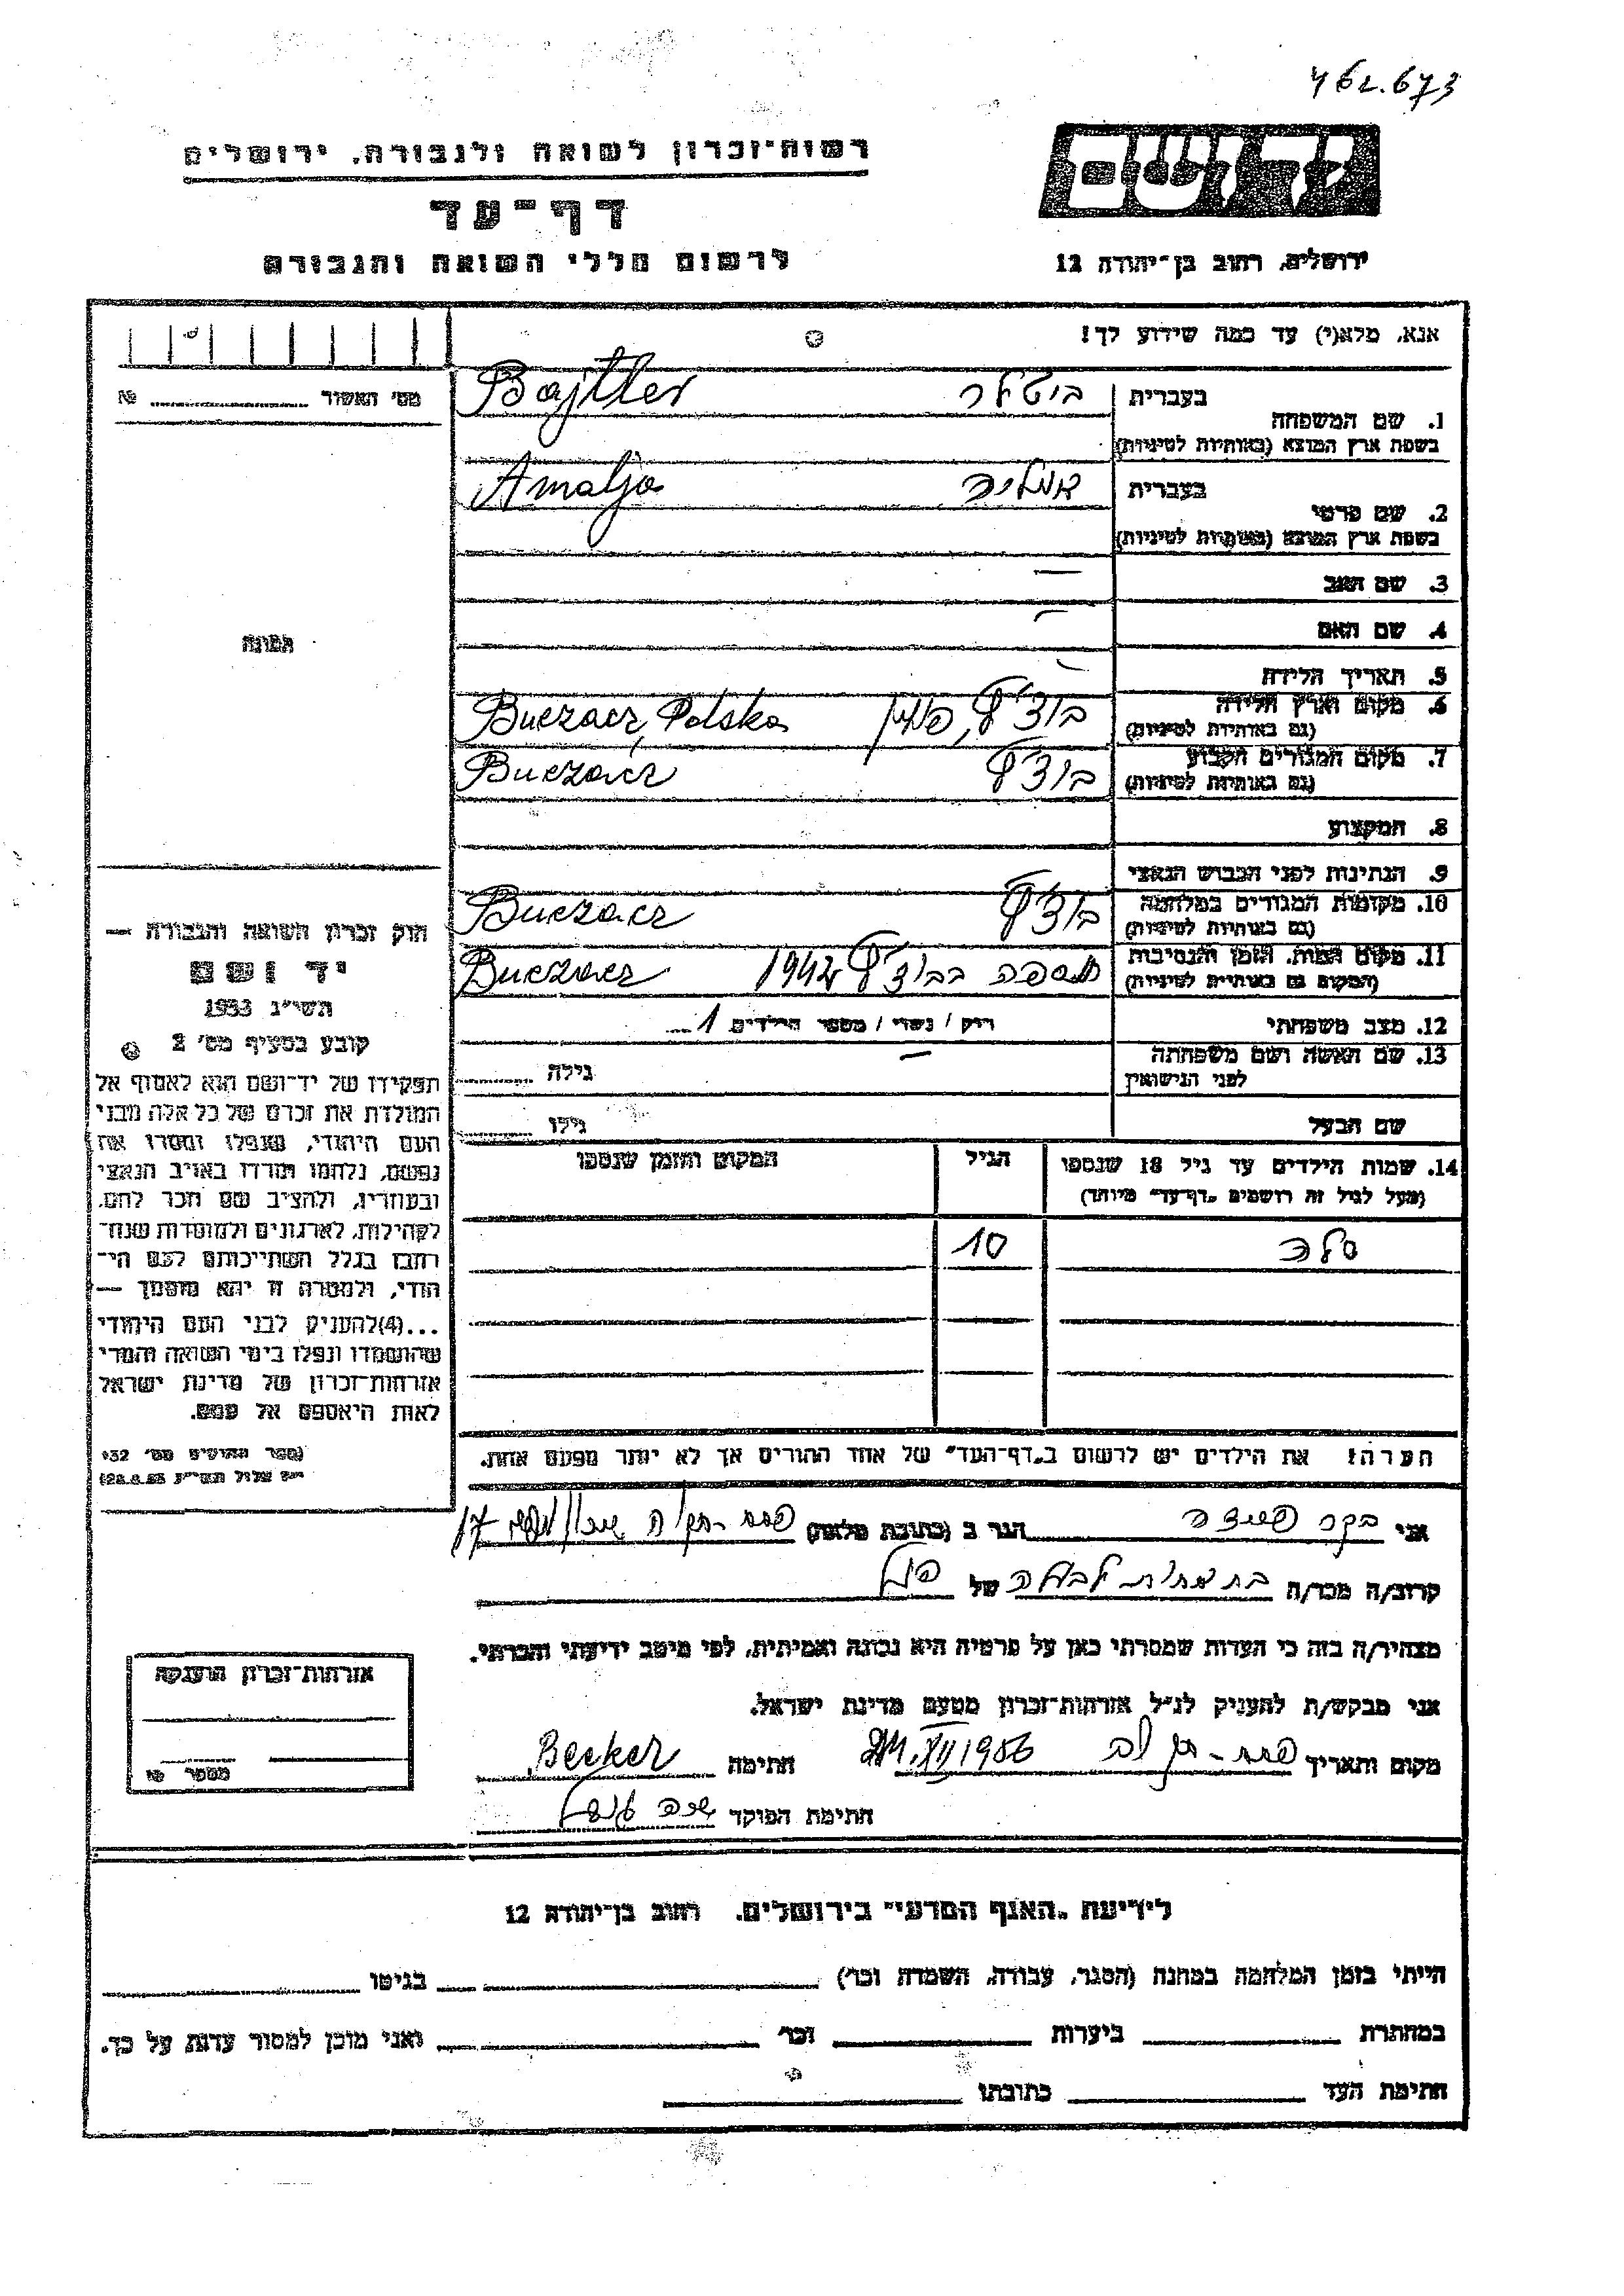 462.673
יד ושם
רשות־זכרון לשואה ולגבורה, ירושלים
דף־עד
לרשום חללי השואה והגבורה
ירושלים, רחוב בן־יהודה 12
אנא, מלא(י) עד כמה שידוע לך!
מס׳ האשור № 
בעברית
1. שם המשפחה
בשפת ארץ המוצא (באותיות לטיניות)
ביטלר Bajtler
בעברית
2. שם פרטי
בשפת ארץ המוצא (באותיות לטיניות)
אמליה Amalja
3. שם האב —
4. שם האם —
5. תאריך הלידה —
6. מקום וארץ הלידה
(גם באותיות לטיניות)
בוצ׳ץ, פולין Buczacz, Polska
7. מקום המגורים הקבוע
(גם באותיות לטיניות)
בוצ׳ץ Buczacz
8. המקצוע
9. הנתינות לפני הכבוש הנאצי
10. מקומות המגורים במלחמה
(גם באותיות לטיניות)
בוצ׳ץ Buczacz
11. מקום המות, הזמן והנסיבות
(המקום גם באותיות לטיניות)
נספה בבוצ׳ץ 1942 Buczacz
12. מצב משפחתי
רוק / נשוי / מספר הילדים 1
13. שם האשה ושם משפחתה
לפני הנישואין
— גילה
שם הבעל
גילו
14. שמות הילדים עד גיל 18 שנספו
(מעל לגיל זה רושמים „דף־עד" מיוחד)
הגיל
המקום והזמן שנספו
סלה 10
הערה: את הילדים יש לרשום ב„דף־העד" של אחד ההורים אך לא יותר מפעם אחת.
תמונה
חוק זכרון השואה והגבורה —
יד ושם
תשי״ג 1953
קובע בסעיף מס׳ 2
תפקידו של יד־ושם הוא לאסוף אל
המולדת את זכרם של כל אלה מבני
העם היהודי, שנפלו ומסרו את
נפשם, נלחמו ומרדו באויב הנאצי
ובעוזריו, ולהציב שם וזכר להם,
לקהילות, לארגונים ולמוסדות שנח־
רבו בגלל השתייכותם לעם הי־
הודי, ולמטרה זו יהא מוסמך —
...(4)להעניק לבני העם היהודי
שהושמדו ונפלו בימי השואה והמרי
אזרחות־זכרון של מדינת ישראל
לאות היאספם אל עמם.
(ספר החוקים מס׳ 132
אלול תשי״ג 28.8.53)
אני בקר הגר ב (כתובת מלאה) פתח-תקוה 17
קרוב/ה מכר/ה של
מצהיר/ה בזה כי העדות שמסרתי כאן על פרטיה היא נכונה ואמיתית, לפי מיטב ידיעתי והכרתי.
אני מבקש/ת להעניק לנ״ל אזרחות־זכרון מטעם מדינת ישראל.
מקום ותאריך פתח-תקוה 24.XII 1956 חתימה Becker
חתימת הפוקד
אזרחות־זכרון הוענקה
מספר №
לידיעת „האגף המדעי" בירושלים. רחוב בן־יהודה 12
הייתי בזמן המלחמה במחנה (הסגר, עבודה, השמדה וכו׳) בגיטו
במחתרת ביערות וכו׳ ואני מוכן למסור עדות על כך.
חתימת העד כתובתו